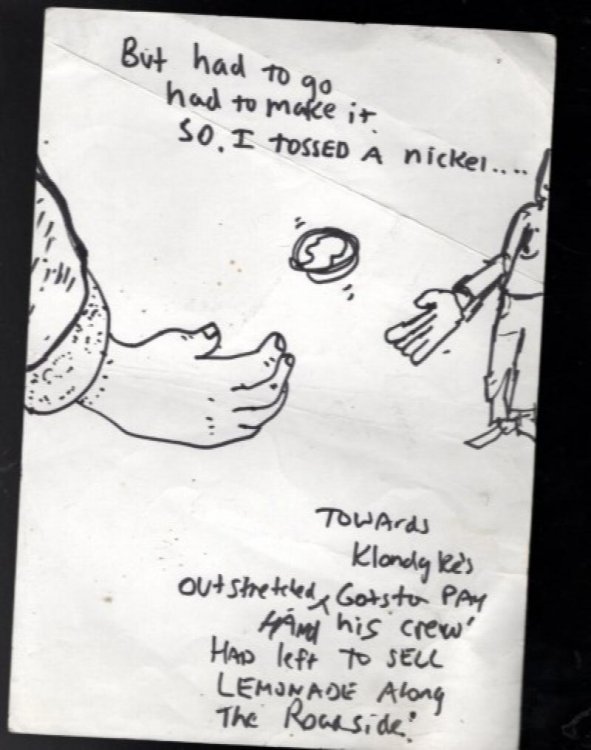 But had to go
had to make it.
SO. I TOSSED A nickel....
TOWArds
Klondyke's
OUtstretched Gotsta PAY
HAnd his crew'
HAD left TO SELL
LEMONADE Along
The Roadside.'